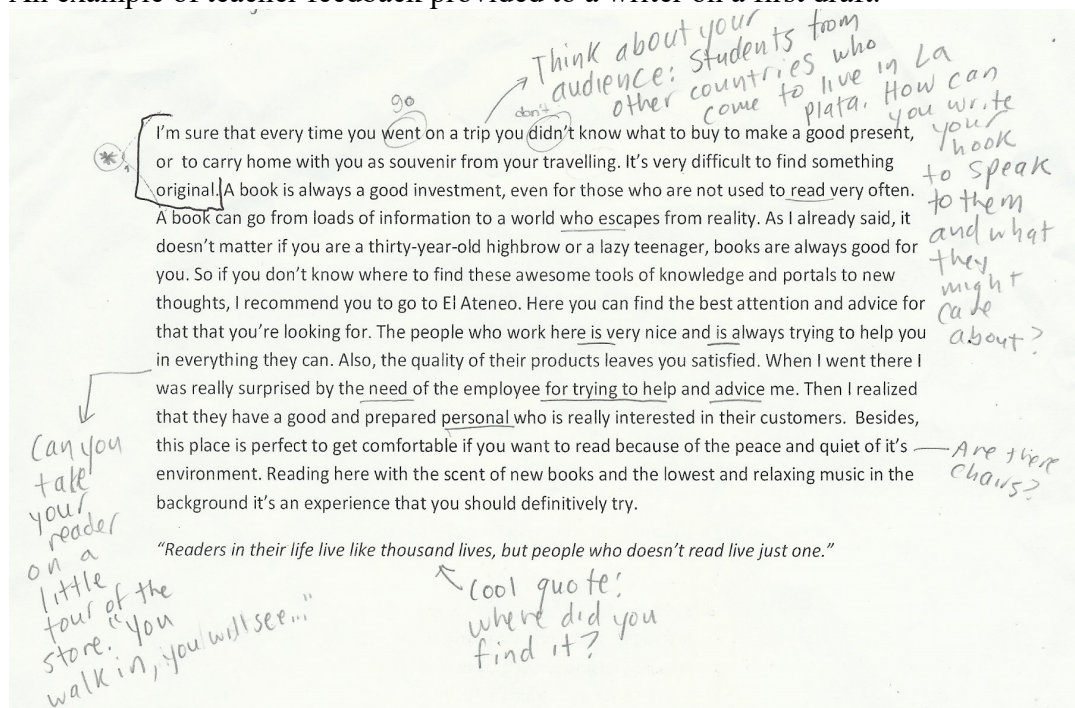 An example of teacher feedback provided to a writer on a first draft.
Think about your
audience: Students from
other countries who
come to live in La
plata. How can
you write
your
hook
to speak
to them
and what
they
might
care
about?
go
don't
I'm sure that every time you went on a trip you didn't know what to buy to make a good present,
or to carry home with you as souvenir from your travelling. It's very difficult to find something
original. A book is always a good investment, even for those who are not used to read very often.
A book can go from loads of information to a world who escapes from reality. As I already said, it
doesn't matter if you are a thirty-year-old highbrow or a lazy teenager, books are always good for
you. So if you don't know where to find these awesome tools of knowledge and portals to new
thoughts, I recommend you to go to El Ateneo. Here you can find the best attention and advice for
that that you're looking for. The people who work here is very nice and is always trying to help you
in everything they can. Also, the quality of their products leaves you satisfied. When I went there I
was really surprised by the need of the employee for trying to help and advice me. Then I realized
that they have a good and prepared personal who is really interested in their customers. Besides,
this place is perfect to get comfortable if you want to read because of the peace and quiet of it's
environment. Reading here with the scent of new books and the lowest and relaxing music in the
background it's an experience that you should definitively try.
Are there
chairs?
Can you
take
your
reader
on a
little
tour of the
store. "You
walk in, you will see..."
"Readers in their life live like thousand lives, but people who doesn't read live just one."
Cool quote!
where did you
find it?